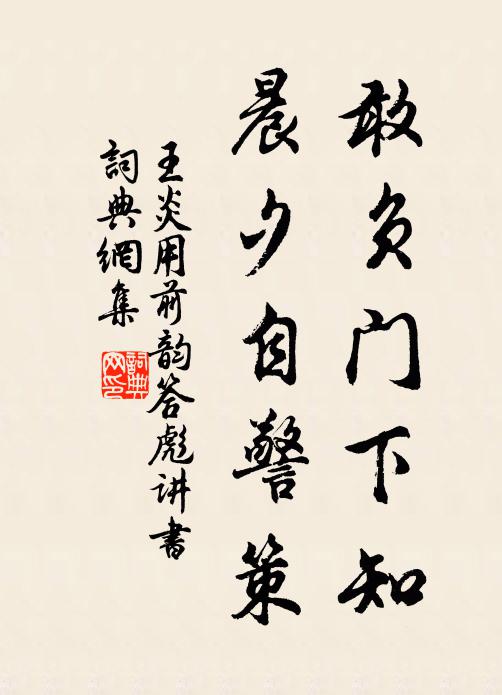 敢负门下知
晨夕自警策
王炎用前韵答彪讲书
词典網集
詞典网印